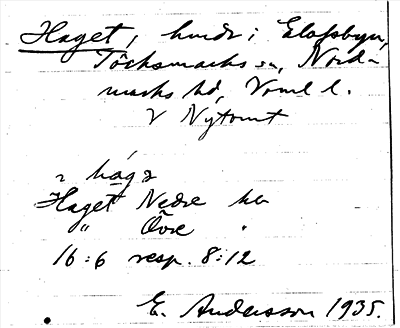 Haget, hmde i Elofsbyn,
Töcksmarks sn, Nord-
marks hd, Vrml l.
V Nytomt
hag2
Haget Nedre hn
" Övre "
16:6 resp. 8:12
E. Andersson 1935.